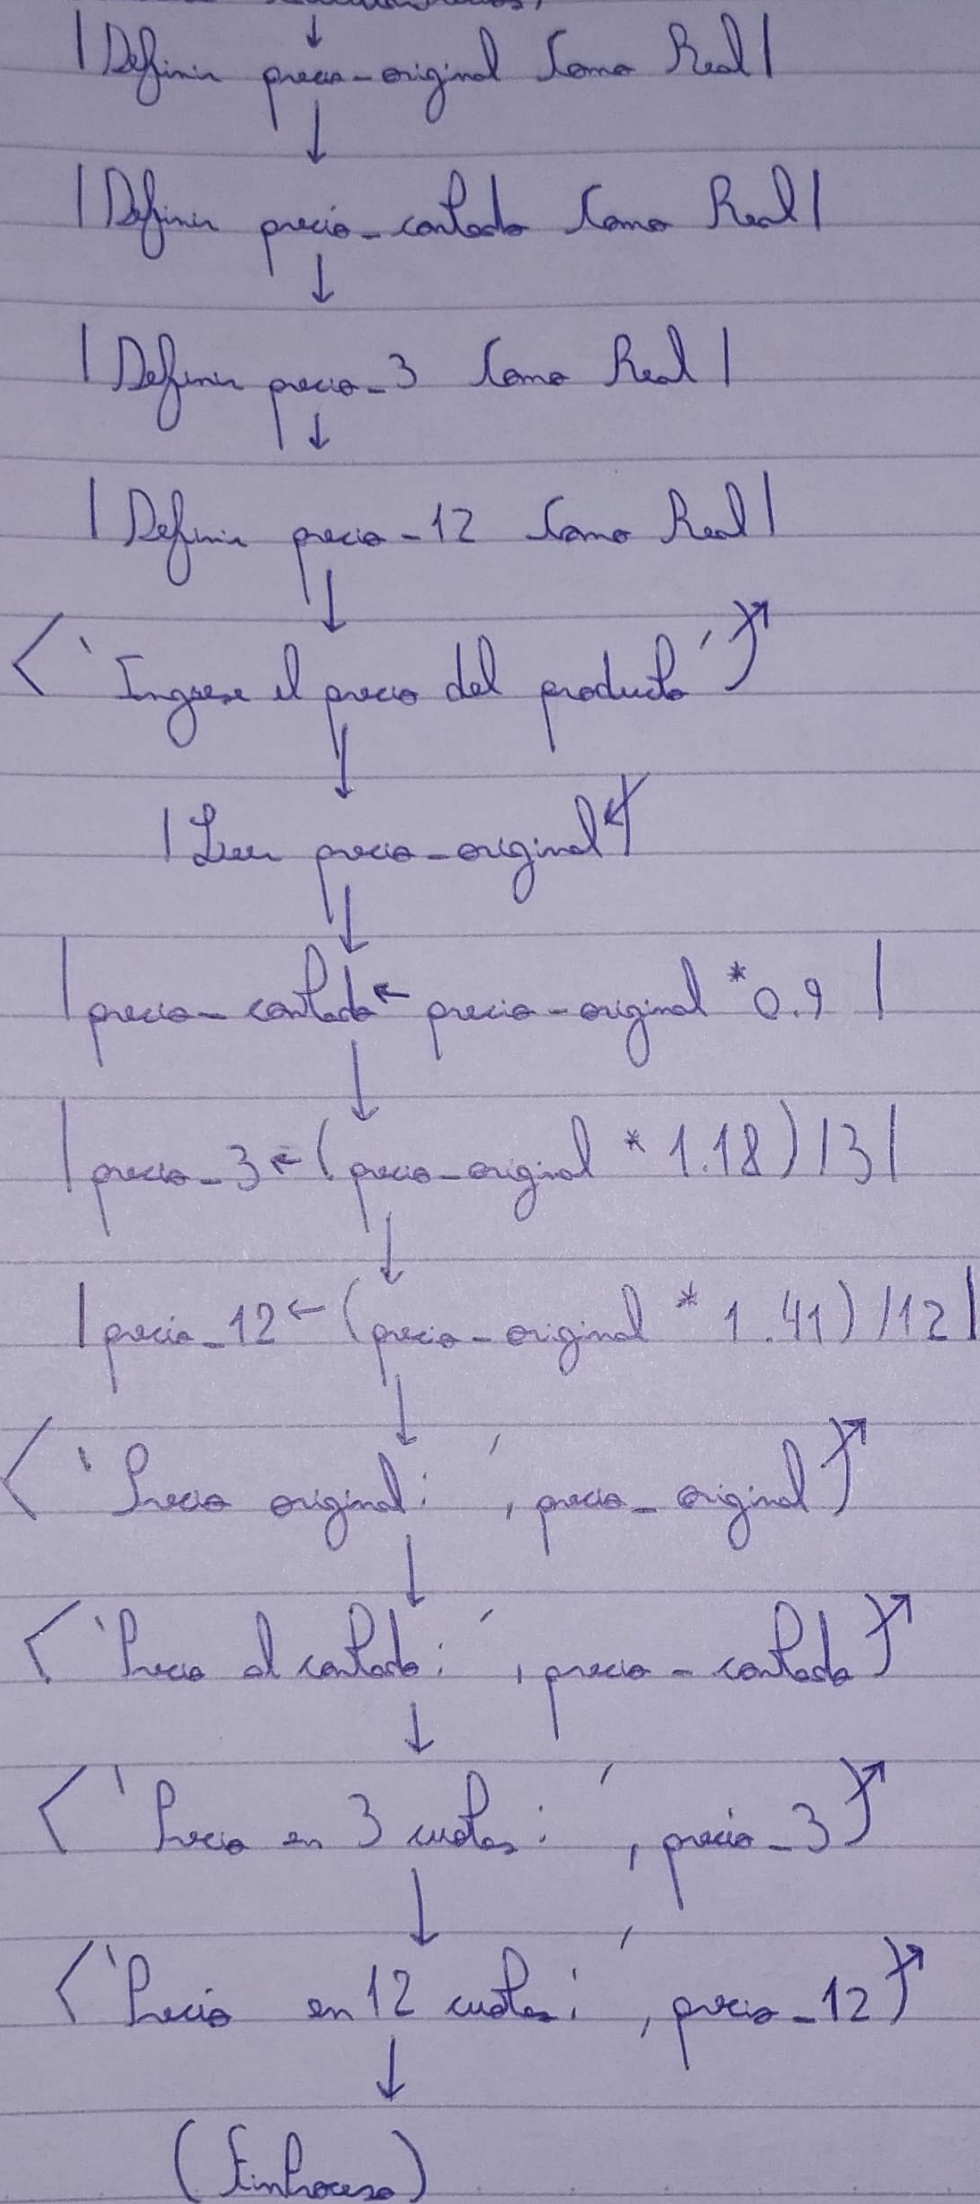 |Definir precio_original Como Real|
|Definir precio_contado Como Real|
|Definir precio_3 Como Real|
|Definir precio_12 Como Real|
'Ingrese el precio del producto'
|Leer precio_original
|precio_contado ← precio_original * 0.9 |
|precio_3 ← (precio_original * 1.18) /3|
|precio_12 ← (precio_original * 1.41) /12|
'Precio original: ', precio_original
'Precio al contado: ', precio_contado
'Precio en 3 cuotas: ', precio_3
'Precio en 12 cuotas: ', precio_12
(FinProceso)